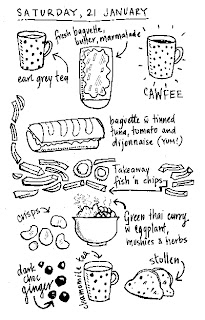 SATURDAY, 21 JANUARY
fresh baguette,
butter, marmalade
earl grey tea
CAWFEE
baguette w tinned
tuna, tomato and
dijonnaise (YUM!)
Takeaway
fish 'n chips
crisps
Green thai curry
w eggplant,
mushies & herbs
dark
choc
ginger
chamomile tea
stollen